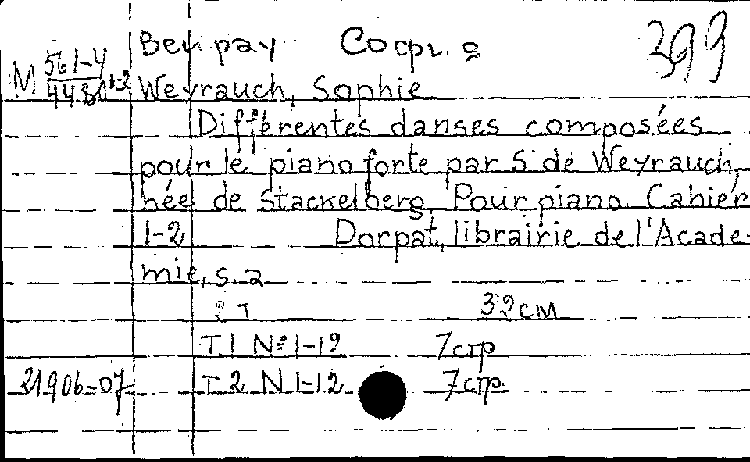 Вейрау Софи
399
М 561-4
Weyrauch, Sophie
Différentes danses composées
pour le piano forte par S. de Weyrauch,
née de Stackelberg. Pour piano. Cahier
1-2 Dorpat, librairie de l'Acade-
mie, s. a
2 т 32 см
Т.1 № 1-12 7 стр
21906-07 Т.2 N 1-12 7 стр.